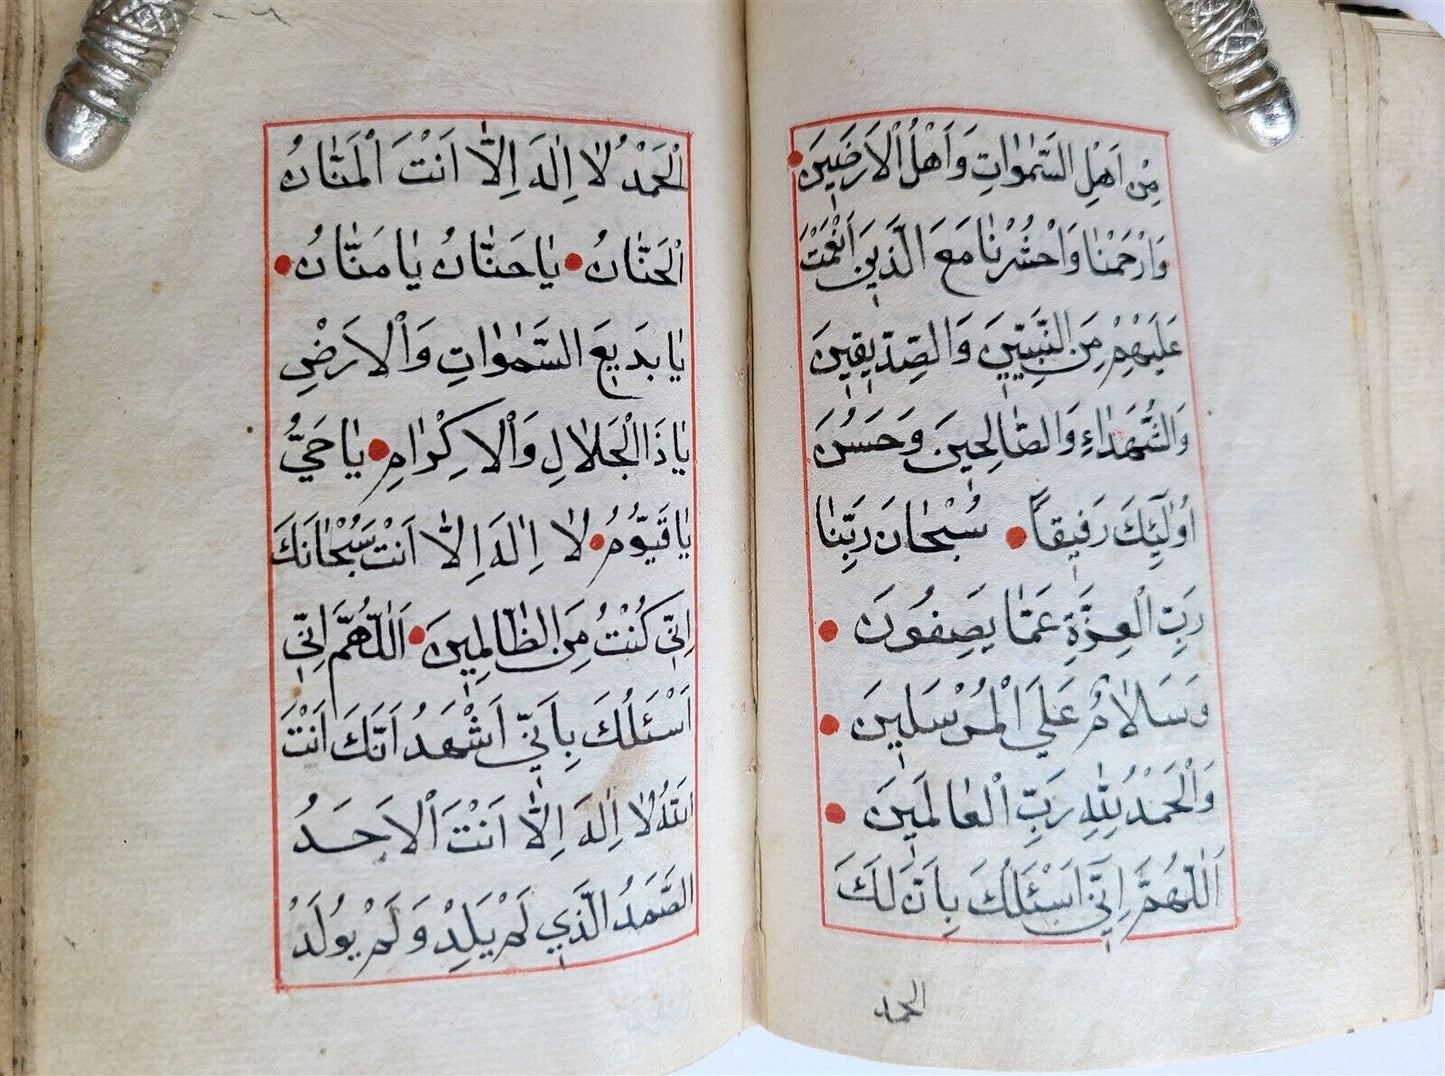 مِنْ اَهْلِ السَّمٰوَاتِ وَاَهْلُ الْاَرَضٖينَ
وَارْحَمْنَا وَاحْشُرْنَا مَعَ الَّذٖينَ اَنْعَمْتَ
عَلَيْهِمْ مِنَ النَّبِيّٖينَ وَالصِّدّٖيقٖينَ
وَالشُّهَدَاءِ وَالصَّالِحٖينَ وَحَسُنَ
اُولٰٓئِكَ رَفٖيقاً سُبْحَانَ رَبِّنَا
رَبِّ الْعِزَّةِ عَمَّا يَصِفُونَ
وَسَلَامٌ عَلَي الْمُرْسَلٖينَ
وَالْحَمْدُ لِلّٰهِ رَبِّ الْعَالَمٖينَ
اَللّٰهُمَّ اِنّٖي اَسْئَلُكَ بِاَنَّ لَكَ
الحمد
الْحَمْدُ لَا اِلٰهَ اِلَّا اَنْتَ الْمَنَّانُ
الْحَنَّانُ يَا حَنَّانُ يَا مَنَّانُ
يَا بَدٖيعَ السَّمٰوَاتِ وَالْاَرْضِ
يَا ذَا الْجَلَالِ وَالْاِكْرَامِ يَا حَيُّ
يَا قَيُّومُ لَا اِلٰهَ اِلَّا اَنْتَ سُبْحَانَكَ
اِنّٖي كُنْتُ مِنَ الظَّالِمٖينَ اَللّٰهُمَّ اِنّٖي
اَسْئَلُكَ بِاَنّٖي اَشْهَدُ اَنَّكَ اَنْتَ
اللّٰهُ لَا اِلٰهَ اِلَّا اَنْتَ الْاَحَدُ
الصَّمَدُ الَّذٖي لَمْ يَلِدْ وَلَمْ يُولَدْ